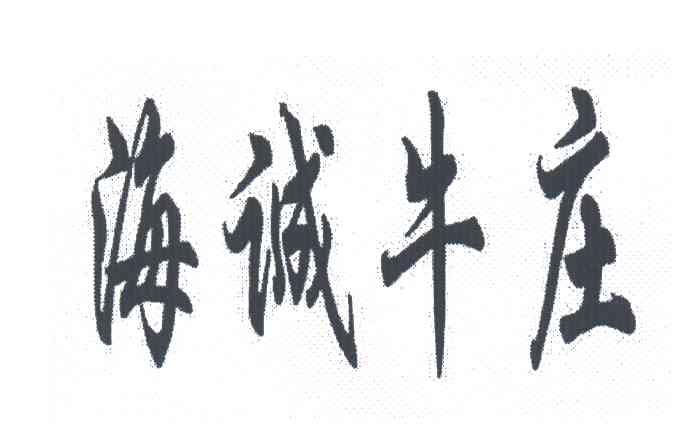 海诚牛庄